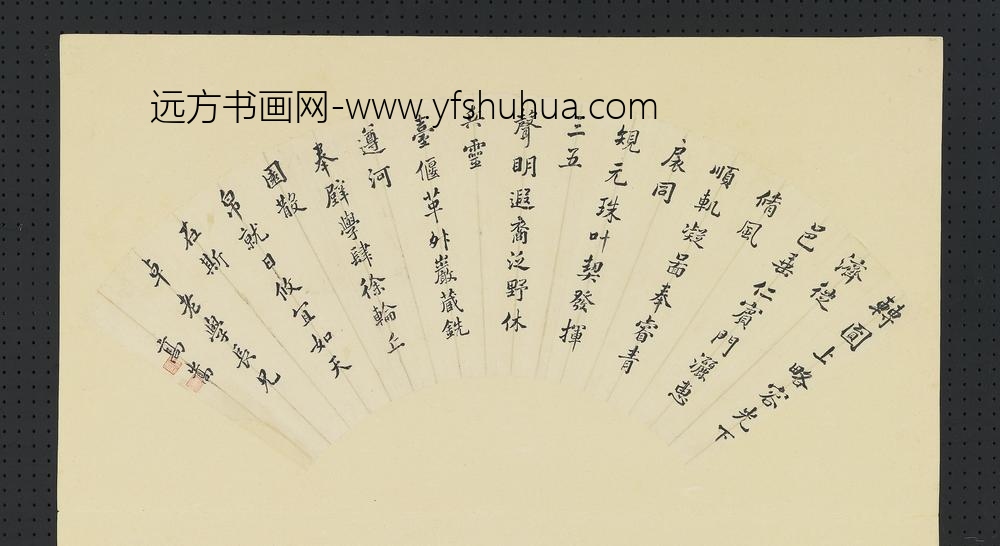 远方书画网-www.yfshuhua.com
轉圜上略容光下
濟從
邑垂仁賓門灑惠
脩風
順軌凝啚奉睿青
扆同
規元珠叶契發揮
三五
聲明遐裔泛野休
兵靈
臺偃革外巖藏銑
遵河
奉璧學肆徐輪丘
園散
帛就日攸宜如天
在斯
卓老學長兄
高